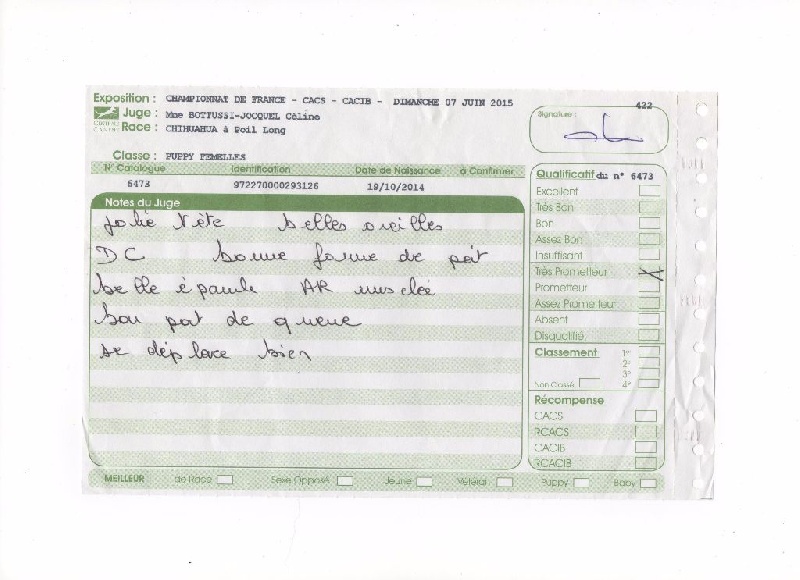 Exposition : CHAMPIONNAT DE FRANCE - CACS - CACIB - DIMANCHE 07 JUIN 2015
422
Juge : Mme BOTTUSSI-JOCQUEL Céline
Signature :
Race : CHIHUAHUA à Poil Long
Classe : PUPPY FEMELLES
N° Catalogue Identification Date de Naissance à Confirmer
6473 972270000293126 19/10/2014
Qualificatif du n° 6473
Notes du Juge
Excellent
Très Bon
Bon
Assez Bon
Insuffisant
Très Prometteur X
Prometteur
Assez Prometteur
Absent
Disqualifié
jolie tête belles oreilles
DC bonne forme de poit
belle épaule AR musclée
bon port de queue
se déplace bien
Classement 1er
2e
3e
Non Classé 4e
Récompense
CACS
RCACS
CACIB
RCACIB
MEILLEUR de Race Sexe Opposé Jeune Vétéran Puppy Baby